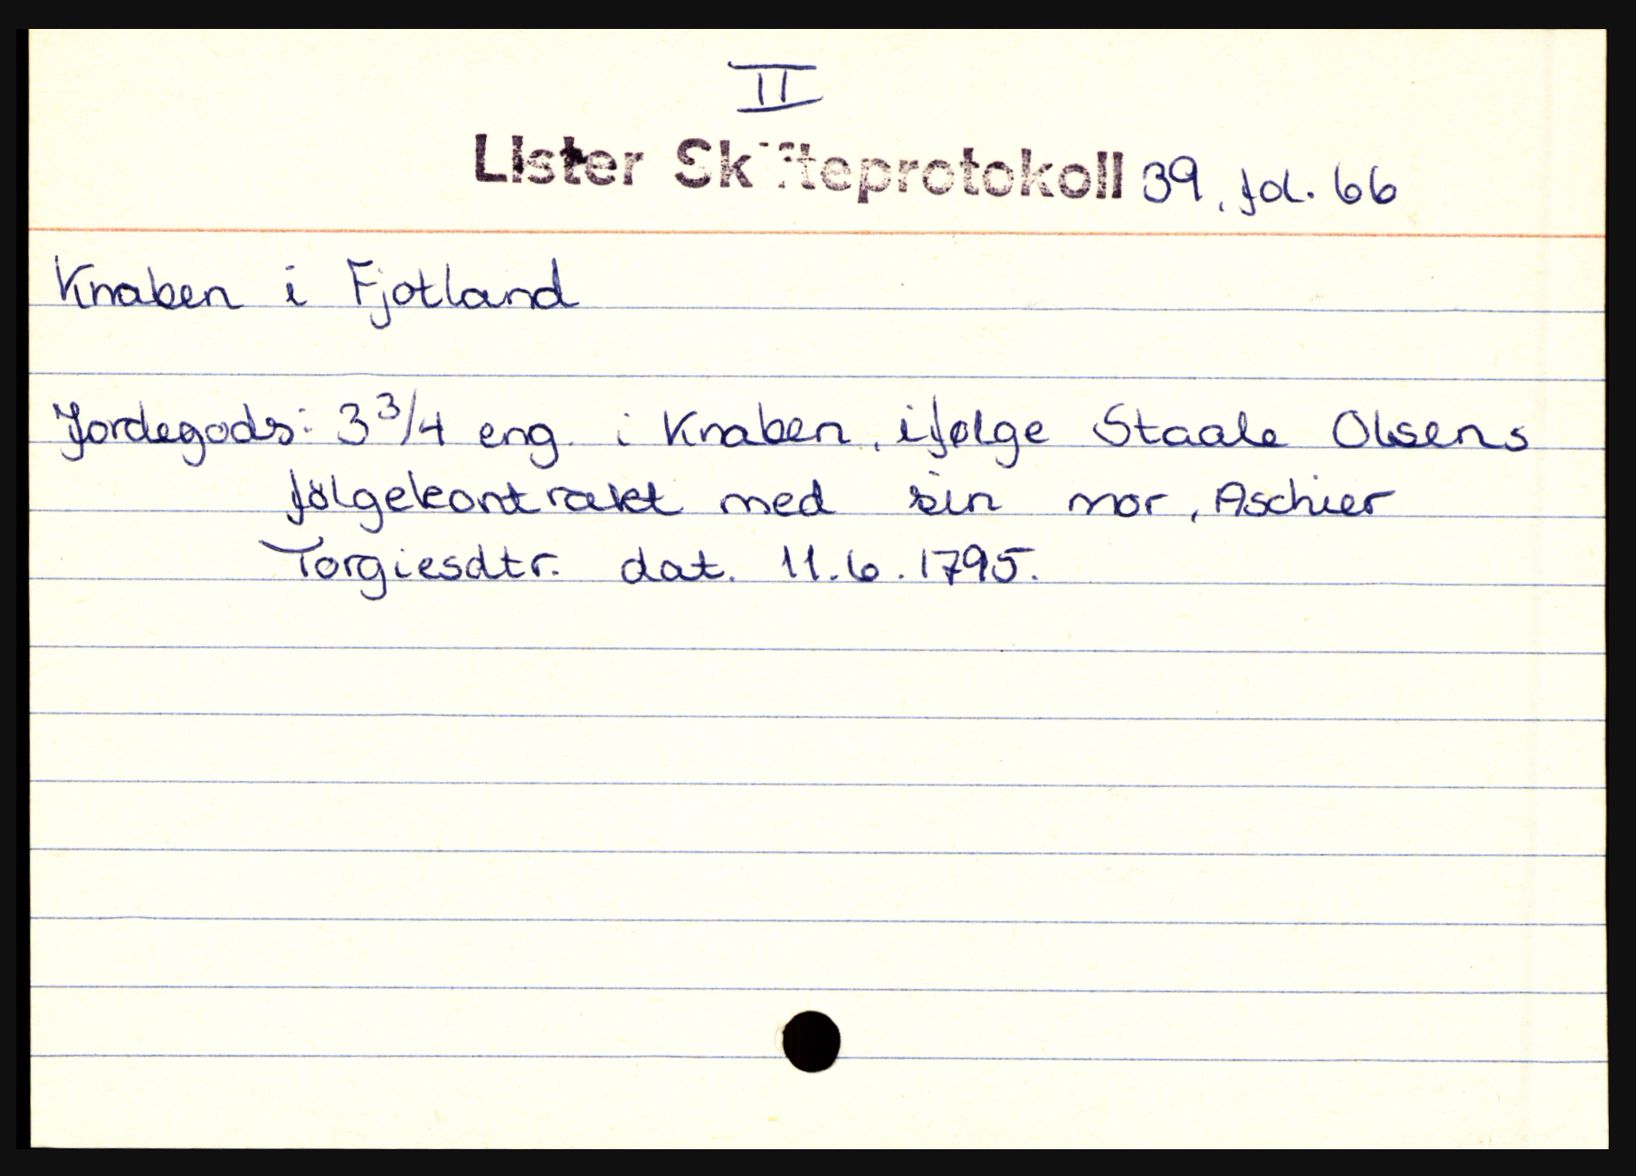 II
Lister Skifteprotokoll 39, fol. 66
Knaben i Fjotland
Jordegods: 3 3/4 eng. i Knaben, ifølge Staale Olsens
følgekontrakt med sin mor, Aschier
Torgiesdtr. dat. 11.6.1795.